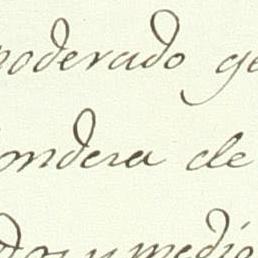 poderado ge
ondera de
dos y medio